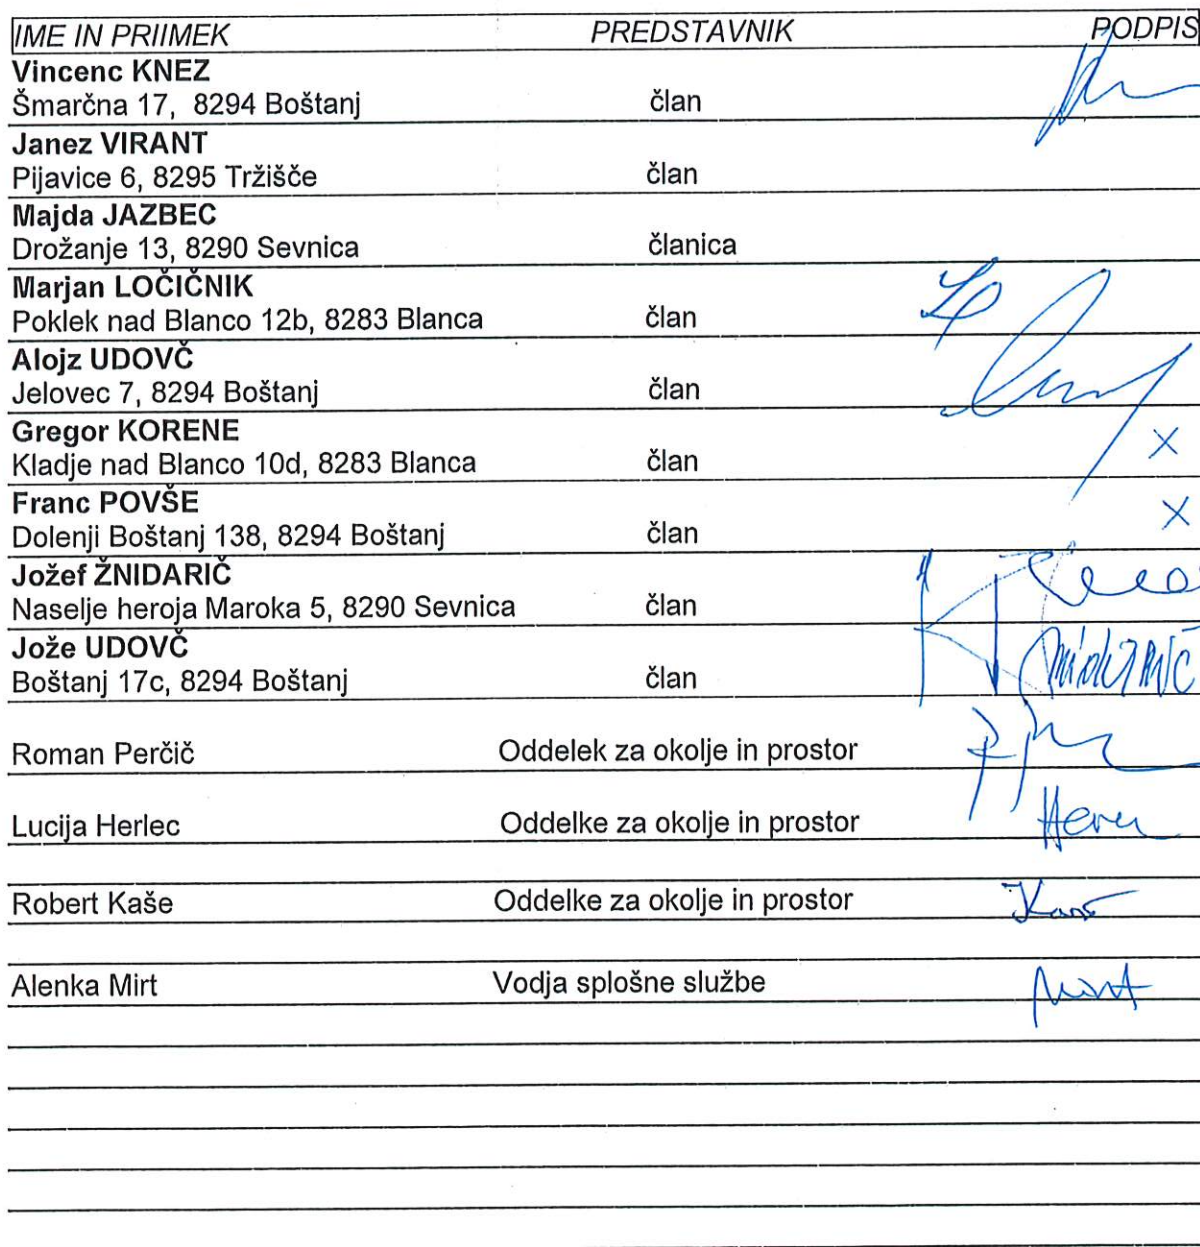 IME IN PRIIMEK PREDSTAVNIK PODPIS
Vincenc KNEZ
Šmarčna 17, 8294 Boštanj član
Janez VIRANT
Pijavice 6, 8295 Tržišče član
Majda JAZBEC
Drožanje 13, 8290 Sevnica članica
Marjan LOČIČNIK
Poklek nad Blanco 12b, 8283 Blanca član
Alojz UDOVČ
Jelovec 7, 8294 Boštanj član
Gregor KORENE
Kladje nad Blanco 10d, 8283 Blanca član X
Franc POVŠE
Dolenji Boštanj 138, 8294 Boštanj član X
Jožef ŽNIDARIČ
Naselje heroja Maroka 5, 8290 Sevnica član
Jože UDOVČ
Boštanj 17c, 8294 Boštanj član
Roman Perčič Oddelek za okolje in prostor
Lucija Herlec Oddelke za okolje in prostor
Robert Kaše Oddelke za okolje in prostor
Alenka Mirt Vodja splošne službe Mirt